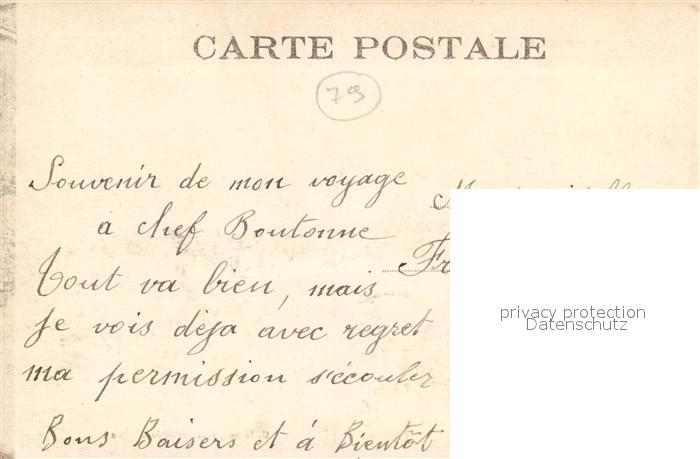 CARTE POSTALE
79
Souvenir de mon voyage
a chef Boutonne
Tout va bien, mais
je vois déja avec regret
ma permission s'écouler
Bons Baisers et à Bientôt
privacy protection
Datenschutz